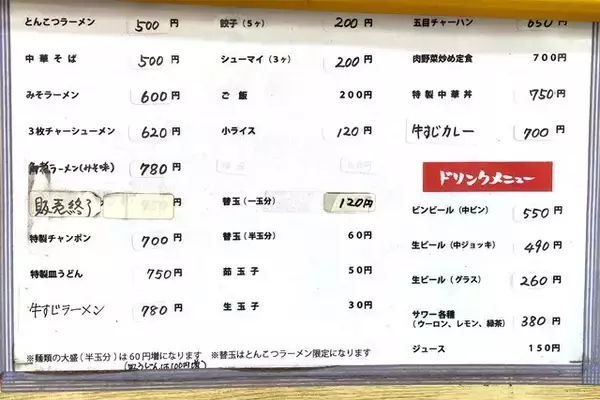 とんこつラーメン 500円
中華そば 500円
みそラーメン 600円
3枚チャーシューメン 620円
角煮ラーメン(みそ味) 780円
販売終了
特製チャンポン 700円
特製皿うどん 750円
牛すじラーメン 780円
餃子(5ヶ) 200円
シューマイ(3ヶ) 200円
ご飯 200円
小ライス 120円
替玉(一玉分) 120円
替玉(半玉分) 60円
茹玉子 50円
生玉子 30円
五目チャーハン 650円
肉野菜炒め定食 700円
特製中華丼 750円
牛すじカレー 700円
ドリンクメニュー
ビンビール(中ビン) 550円
生ビール(中ジョッキ) 490円
生ビール(グラス) 260円
サワー各種
(ウーロン、レモン、緑茶) 380円
ジュース 150円
※麺類の大盛(半玉分)は60円増になります ※替玉はとんこつラーメン限定になります
(皿うどんは100円増)